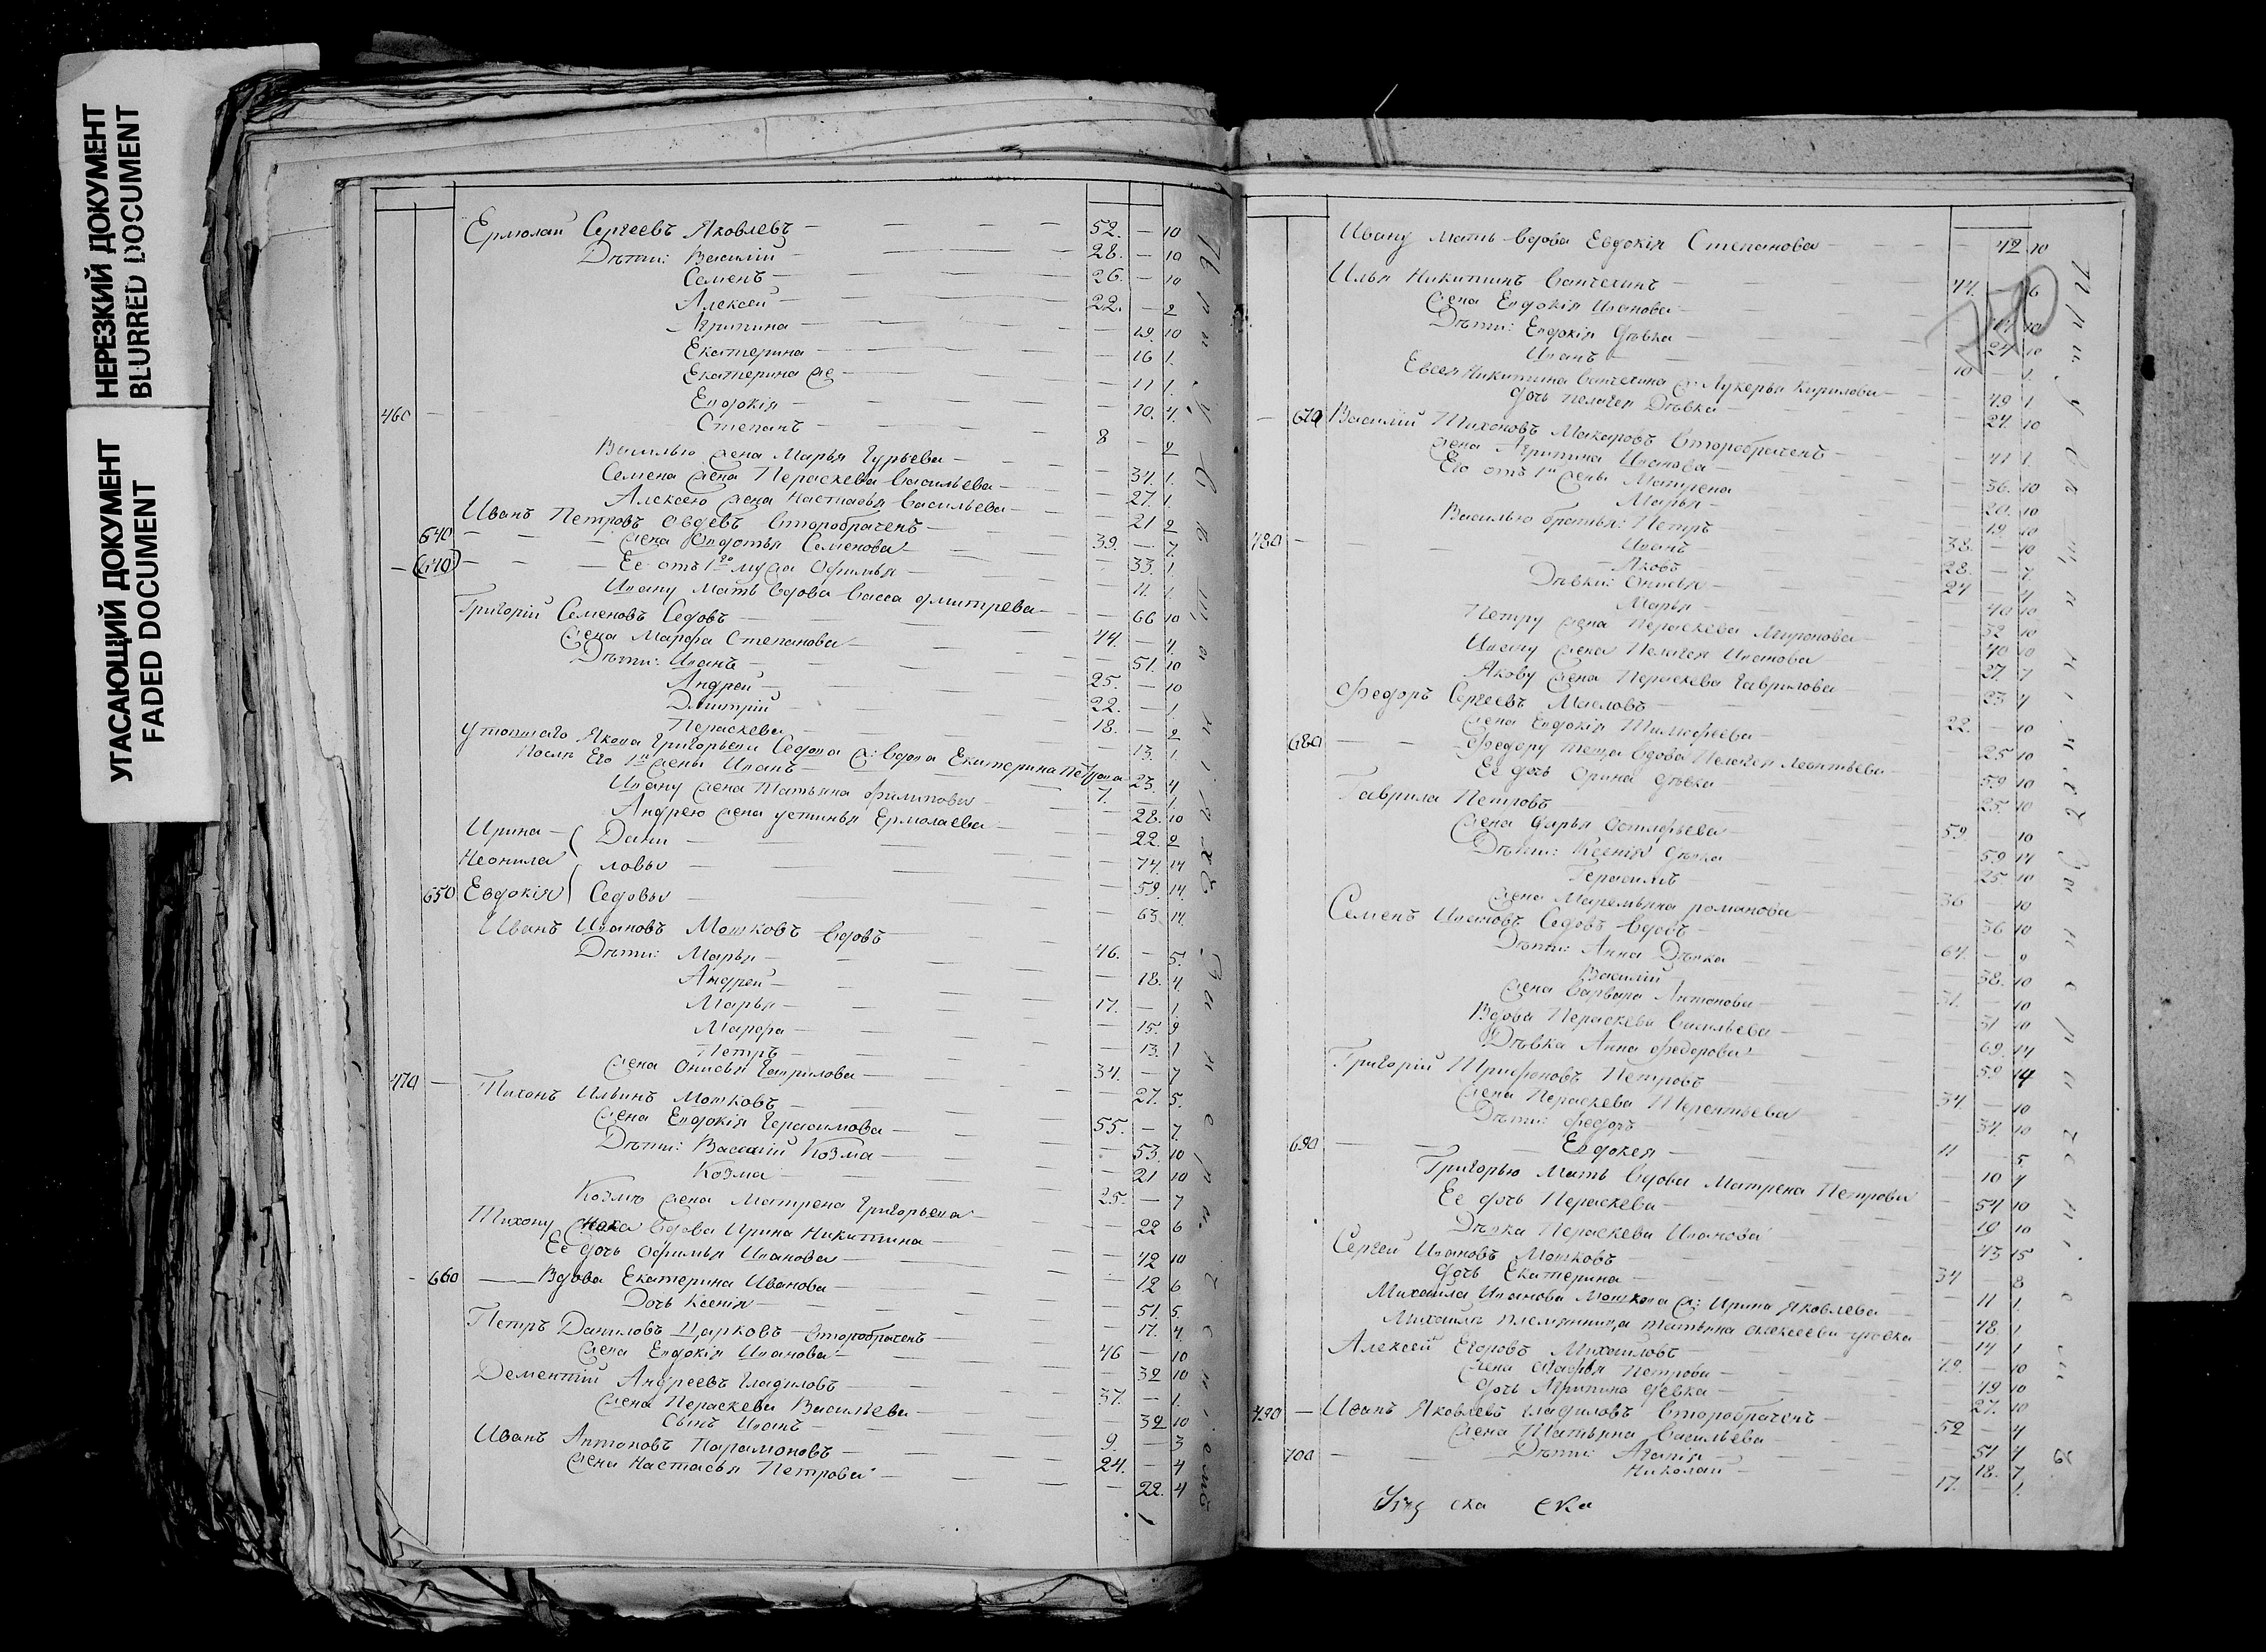 НЕРЕЗКИЙ ДОКУМЕНТ
BLURRED DOCUMENT
УГАСАЮЩИЙ ДОКУМЕНТ
FADED DOCUMENT
Ермолай Сергеевъ Яковлевъ — 52. — 10
Дѣти: Василій — 28. — 10
Семенъ — 26. — 10
Алексей — 22. — 2
Агрипина — — 19. 10
Екатерина — — 16 1.
Екатерина же — — 11 1.
460 — Евдокія — — 10. 4.
Степанъ — 8 — 2
Василью жена Марья Гурьева — — 34. 1.
Семена жена Пераскева Васильева — — 27. 1.
Алексею жена Настасья Васильева — — 21 2
Иванъ Петровъ Авдѣевъ второбраченъ — 39. — 7.
640 — жена Федотья Семенова — — 33. 1.
(640) — Ее отъ 1го мужа Офимья — — 11. 1.
Ивану мать вдова Васса Дмитрева — — 66 10
Григорій Семеновъ Седовъ — 44. — 4.
жена Марфа Степанова — — 51. 10
Дѣти: Иванъ — 25. — 10
Андрей — 22. — 1.
Дмитрій — 18. — 2
Пераскева — — 13. 1.
утопшаго Якова Григорьева Седова ж: вдова Екатерина Петрова — 23. 4
После Его 1й жены Иванъ — 7. — 1.
Ивану жена Татьяна Филипова — — 28. 10
Андрею жена устинья Ермолаева — — 22. 2
Ирина — Дани — — 74. 14
Неонила ловы — — 59. 14.
650 Евдокія Седовы — — 63. 14.
Иванъ Ивановъ Мошковъ вдовъ — 46. — 5.
Дѣти: Марья — — 18. 4.
Андрей — 17. — 1.
Марья — — 15. 9
Марфа — — 13. 1
Петръ — 34. — 7
жена Анисья Гаврилова — — 27. 5.
470 — Тихонъ Ильинъ Мошковъ — 55. — 7.
жена Евдокія Герасимова — — 53. 10
Дѣти: Васса Козма — — 21 10
Козма — 25. — 7
Козмѣ жена Матрена Григорьева — — 22 6
Тихону вдова Ирина Никитина — — 42 10
Ее дочь Офимья Иванова — — 12 6
660 — Вдова Екатерина Иванова — — 51. 5.
Дочь Ксенія — — 17. 4.
Петръ Даниловъ Царковъ второбраченъ — 46 — 10
жена Евдокія Иванова — — 32 10
Дементій Андреевъ Гладиловъ — 37. — 1.
жена Пераскева Васильева — — 32 10
Сынъ Иванъ — 9. — 3
Иванъ Антоновъ Парамоновъ — 24. — 4
жена Настасья Петрова — — 22. 4
Ивану мать вдова Евдокія Степанова — — 42 10
Илья Никитинъ Ванчехинъ — 44. — 6
жена Евдокія Иванова — 10
Дѣти: Евдокія дѣвка — — 24 10
Иванъ — 10 — 1.
Евсея Никитина Ванчехина ж: Лукерья Кирилова — — 49 1.
дочь Пелагея Дѣвка — — 24. 10
670 Василій Тихоновъ Макаровъ второбраченъ — 41 1.
жена Агрипина Иванова — — 36. 10
Его отъ 1й жены Матрена — — 20. 10
Марья — — 19 10
Василью братья: Петръ — 38. — 10
480 — Иванъ — 28. — 7.
Яковъ — 24 — 4
Дѣвки: Анисья — — 40 10
Марья — — 32 10
Петру жена Пераскева Миронова — — 40 10
Ивану жена Пелагея Иванова — — 27. 7
Якову жена Пераскева Гаврилова — — 23 4
Федоръ Сергеевъ Масловъ — 22. — 10
жена Евдокія Тимофеева — — 25 10
680 — Федору теща вдова Пелагея Леонтьева — — 59 10
Ее дочь Орина дѣвка — — 25. 10
Гаврила Петровъ — 59. 10
жена Дарья Остафьева — — 59 14
Дѣти: Ксенія дѣвка — — 25. 10
Герасимъ — 36 10
жена Маремьяна романова — — 36 10
Семенъ Ивановъ Седовъ вдовъ — 64. — 9
Дѣти: Анна Дѣвка — — 38. 10
Василій — 31. — 10
жена Варвара Антонова — — 31 10
Вдова Пераскева Васильева — — 69. 14
Дѣвка Анна Федорова — — 59 14
Григорій Трифоновъ Петровъ — 34. — 10
жена Пераскева Терентьева — — 34. 10
Дѣти: Федоръ — 11 — 5
690 — Евдокея — — 10 4
Григорью мать вдова Матрена Петрова — — 54 10
Ее дочь Пераскева — — 19 10
Дѣвка Пераскева Иванова — 43 15
Сергей Ивановъ Мошковъ — 34 — 8
дочь Екатерина — — 11 1.
Михаила Иванова Мошкова ж: Ирина Яковлева — — 48. 1.
Михаилѣ племянница Татьяна Алексеева дѣвка — — 14 1
Алексей Егоровъ Михаиловъ — 72. — 10
жена Марфа Петрова — — 49 10
дочь Агрипина девка — — 27. 10
490 — Иванъ Яковлевъ Гладиловъ второбраченъ — 52 — 4
жена Татьяна Васильева — — 51 4
700 — Дѣти: Агапія — — 18. 7.
Николай — 17. — 1.